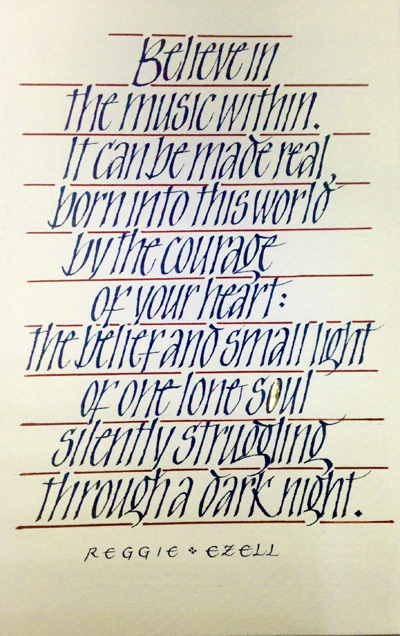 Believe in
the music within.
It can be made real,
born into this world
by the courage
of your heart:
the belief and small light
of one lone soul
silently struggling
through a dark night.
REGGIE ❖ EZELL